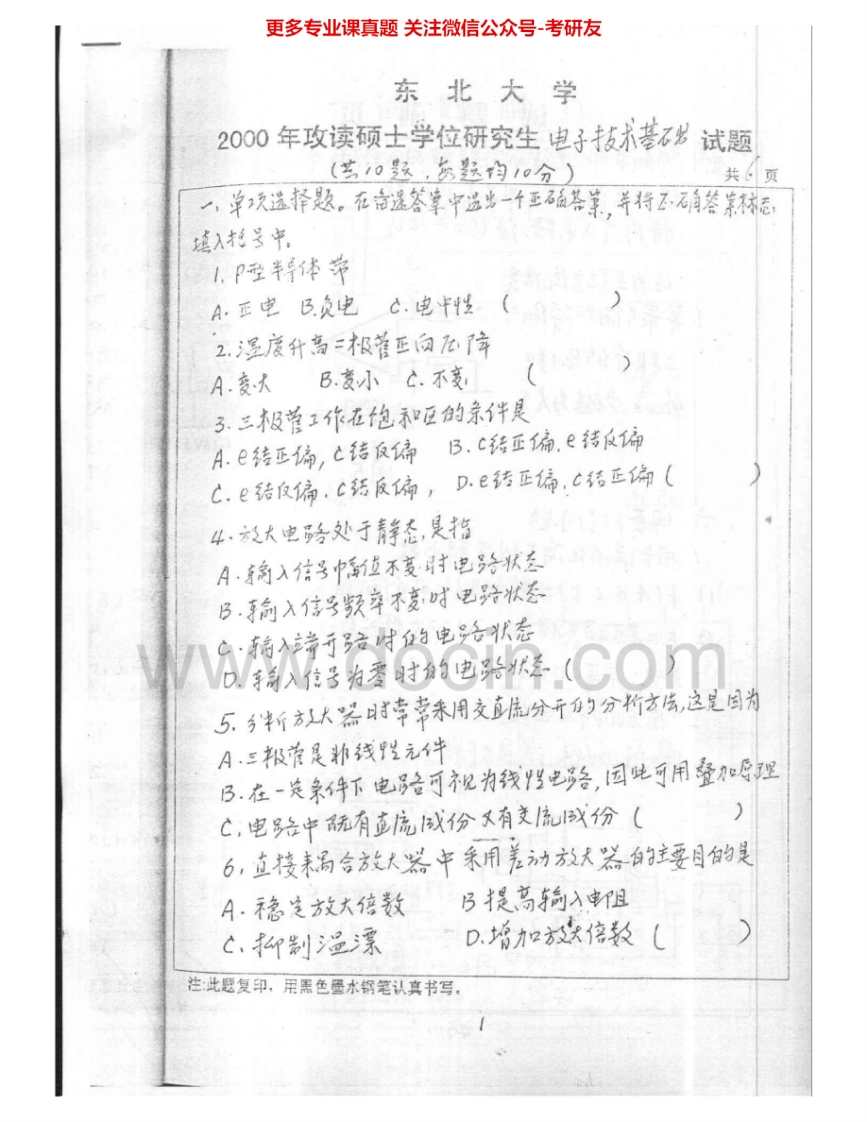 更多专业课真题 关注微信公众号-考研友
东 北 大 学
2000 年攻读硕士学位研究生 电子技术基础 试题
(共10题,每题均10分)
共 6 页
一、单项选择题。在备选答案中选出一个正确答案,并将正确答案标志
填入括号中。
1. P型半导体带
A. 正电 B.负电 C.电中性 ( )
2.温度升高二极管正向压降
A.变大 B.变小 C.不变 ( )
3.三极管工作在饱和区的条件是
A.e结正偏,c结反偏 B.c结正偏.e结反偏
C.e结反偏.c结反偏, D.e结正偏,c结正偏( )
4.放大电路处于静态,是指
A.输入信号幅值不变时电路状态
B.输入信号频率不变时电路状态
C.输入端开路时的电路状态
D.输入信号为零时的电路状态 ( )
www.docin.com
5.分析放大器时常常采用交直流分开的分析方法,这是因为
A.三极管是非线性元件
B.在一定条件下电路可视为线性电路,因此可用叠加原理
C,电路中既有直流成份又有交流成份 ( )
6,直接耦合放大器中采用差动放大器的主要目的是
A.稳定放大倍数 B提高输入电阻
C.抑制温漂 D.增加放大倍数 ( )
注:此题复印,用黑色墨水钢笔认真书写。
1